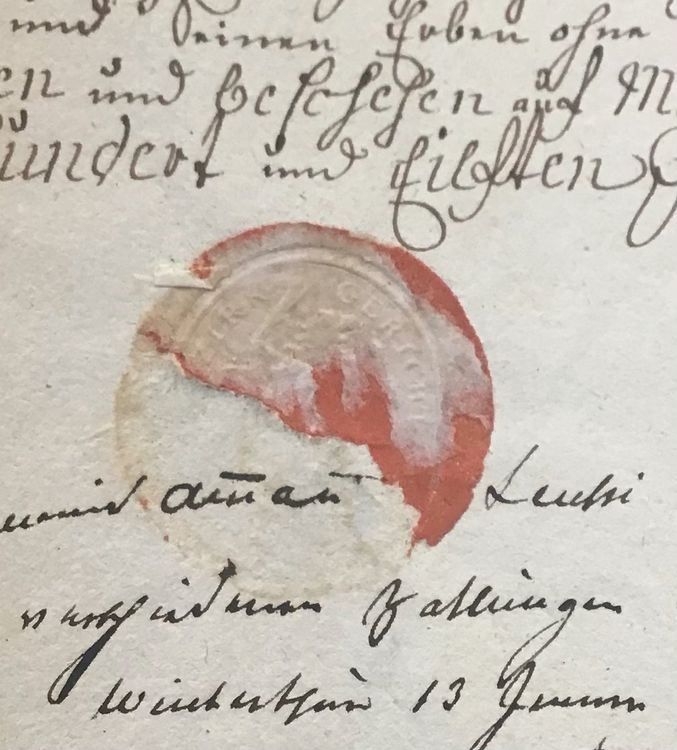 und Seinen Erben ohne
en und beschehen auf M
hundert und Eilften
GERICHT
aman
verschiedenen Zallungen
Winterthur 13